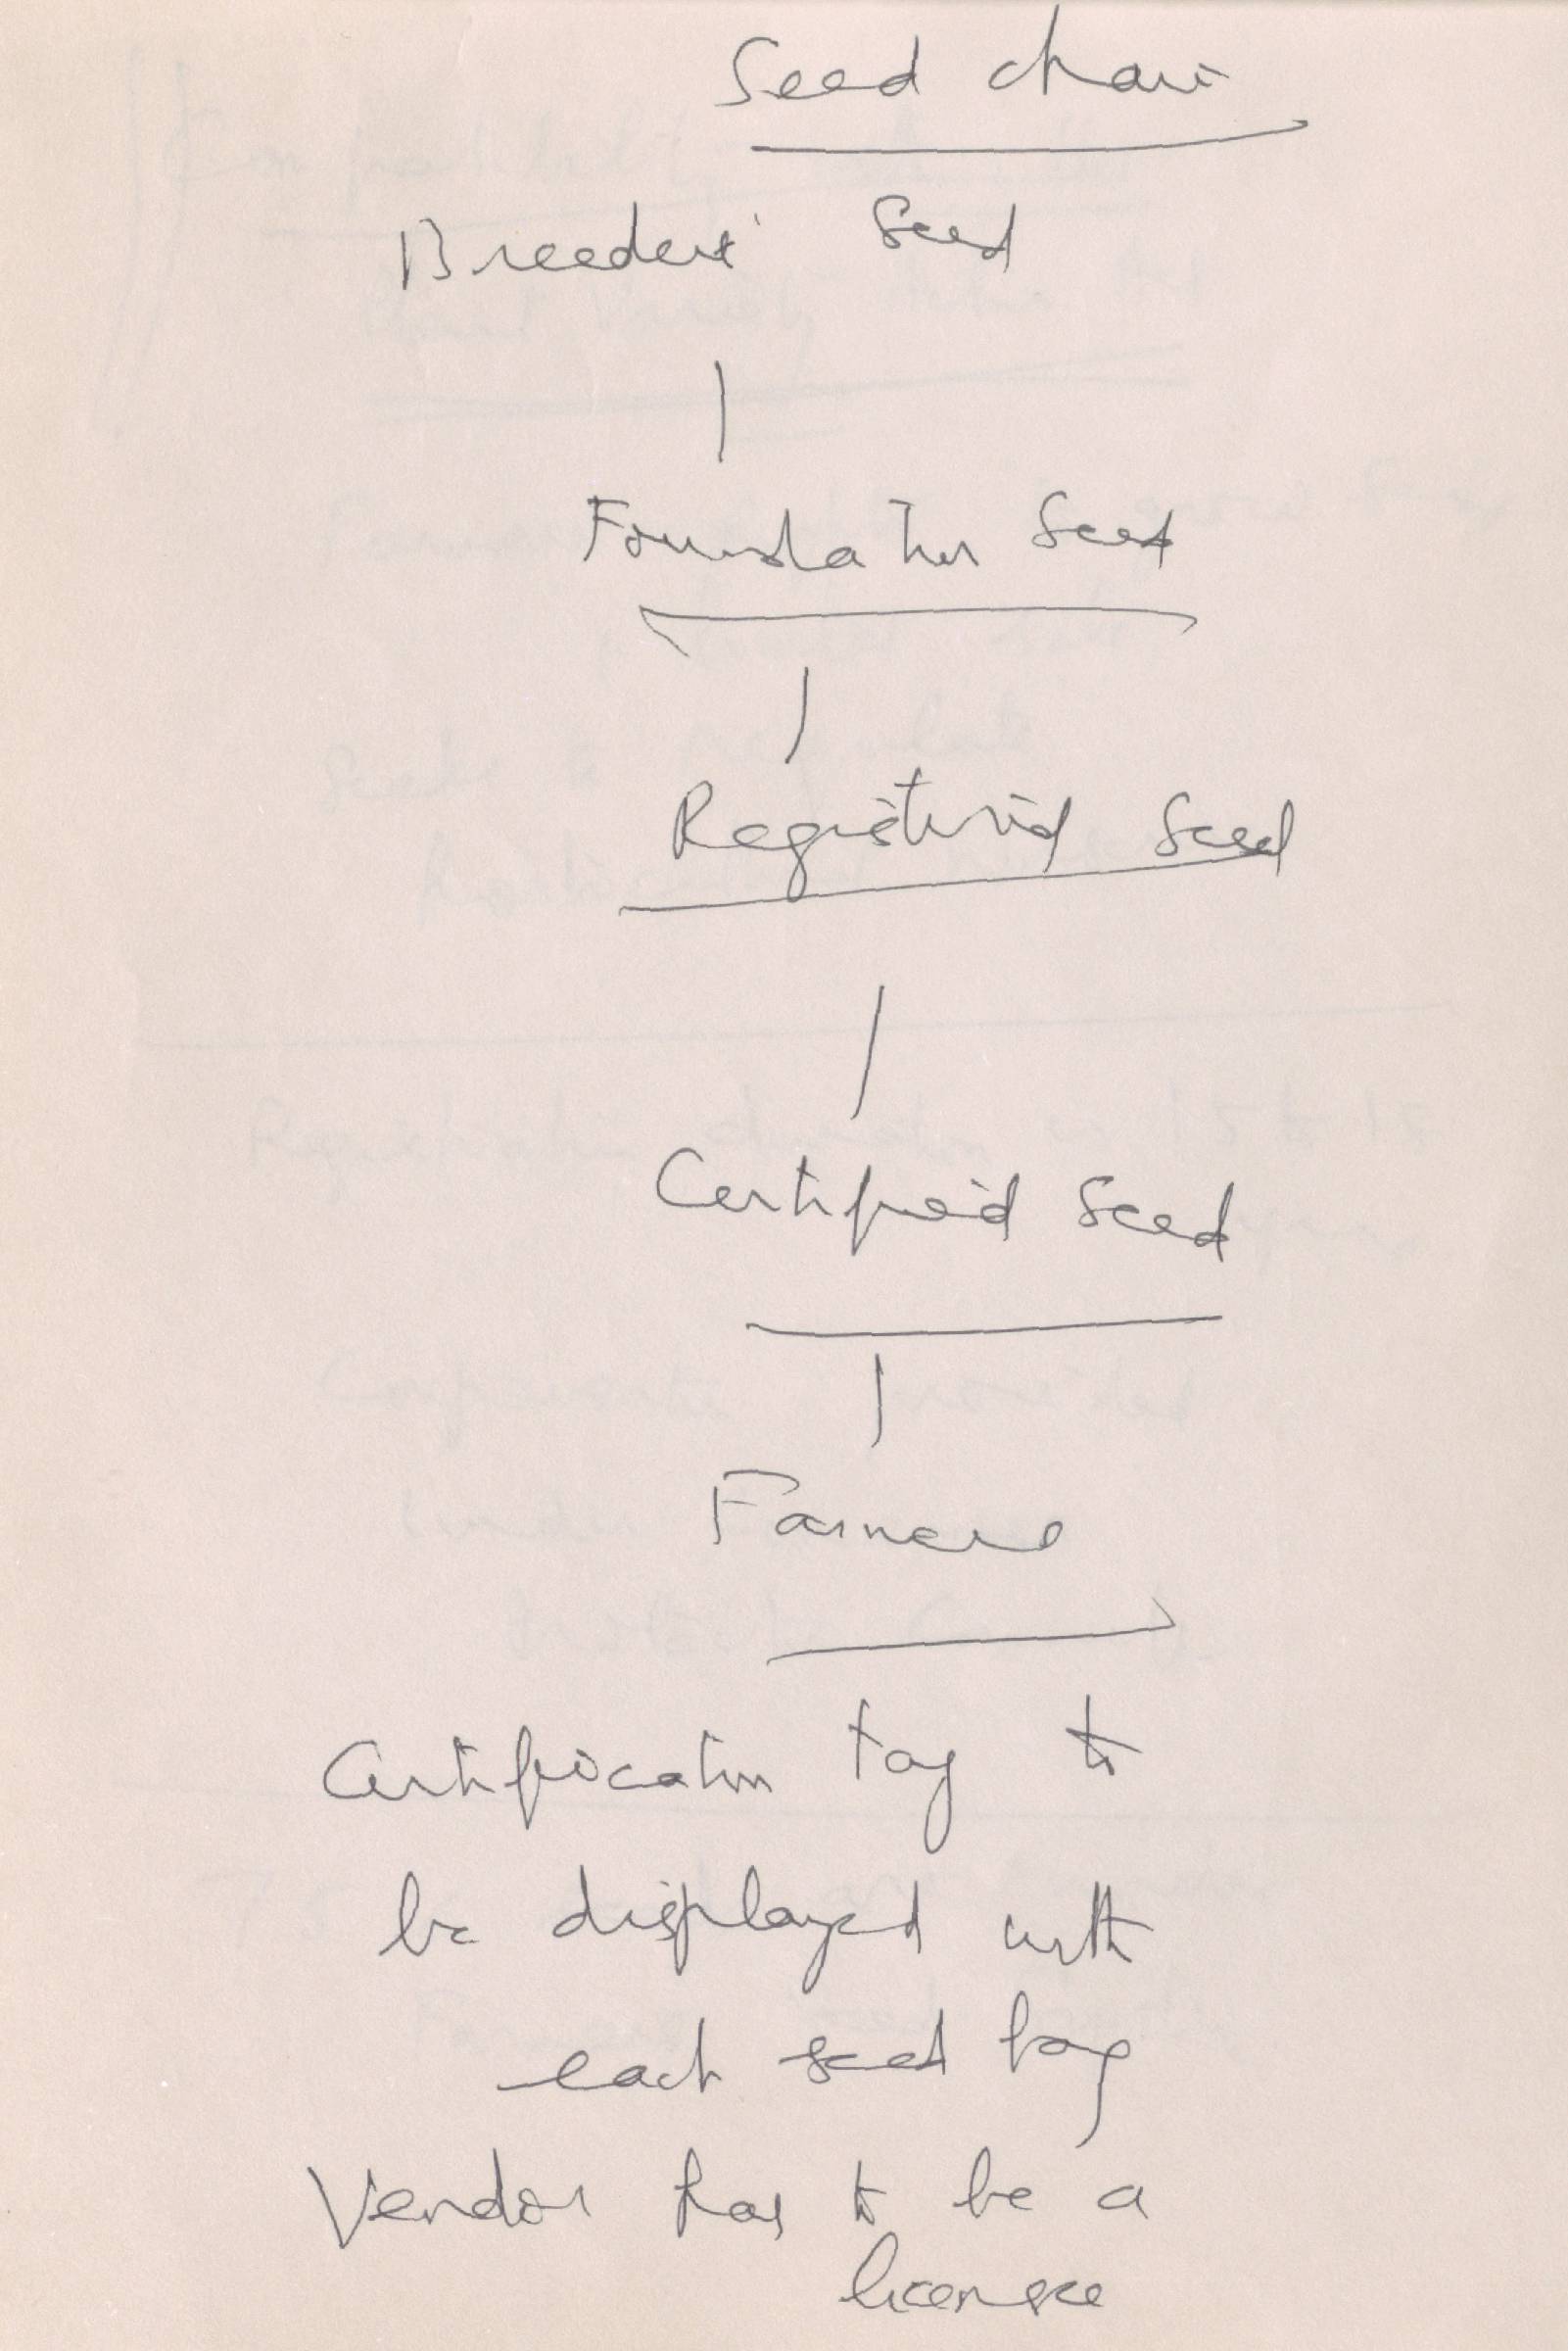 Seed chain
Breeders' Seed
Foundation Seed
Registered Seed
Certified Seed
Farmers
Certification tag to
be displayed with
each seed bag
Vendor has to be a
licensee